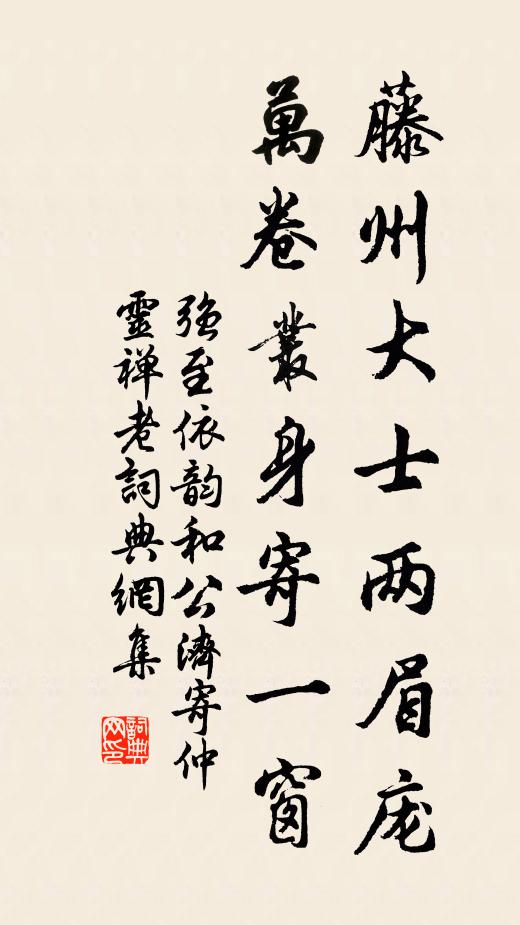 藤州大士两眉庞
萬卷叢身寄一窗
強至依韵和公濟寄仲
靈禅老詞典網集
詞典网印